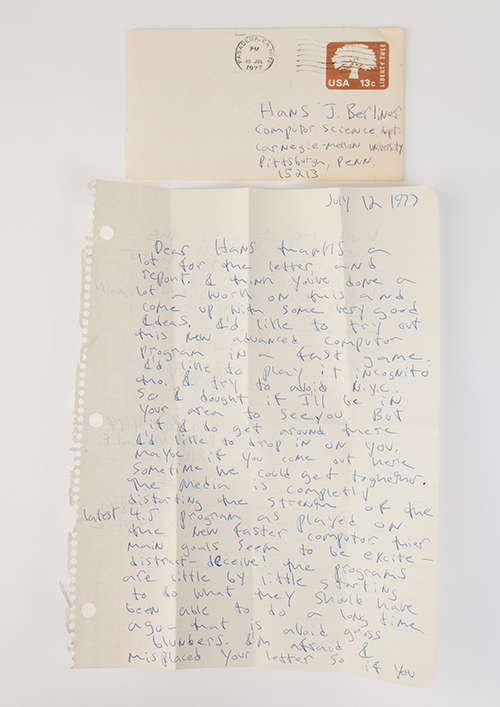 PASADENA, CA
PM
13 JUL
1977
LIBERTY TREE
USA 13c
Hans J. Berliner
Computor Science Dpt.
Carnegie-Mellon University
Pittsburgh, Penn.
15213
July 12 1977
Dear Hans thanks a
lot for the letter and
report. I think you've done a
lot a work on this and
come up with some very good
ideas. I'd like to try out
this new advanced computor
program in a fast game.
I'd like to play it incognito
tho. I try to avoid N.Y.C.
So I dought if I'll be in
your area to see you. But
if I do get around there
I'd like to drop in on you.
Maybe if you come out here
sometime we could get toghether.
The media is completly
distorting the strength of the
latest 4.5 program as played on
the new faster computor. Thier
main goals seem to be excite-
distract-deceive! The programs
are little by little starting
to do what they should have
been able to do a long time
ago- that is avoid gross
blunbers. I'm afraid I
misplaced your letter so if you